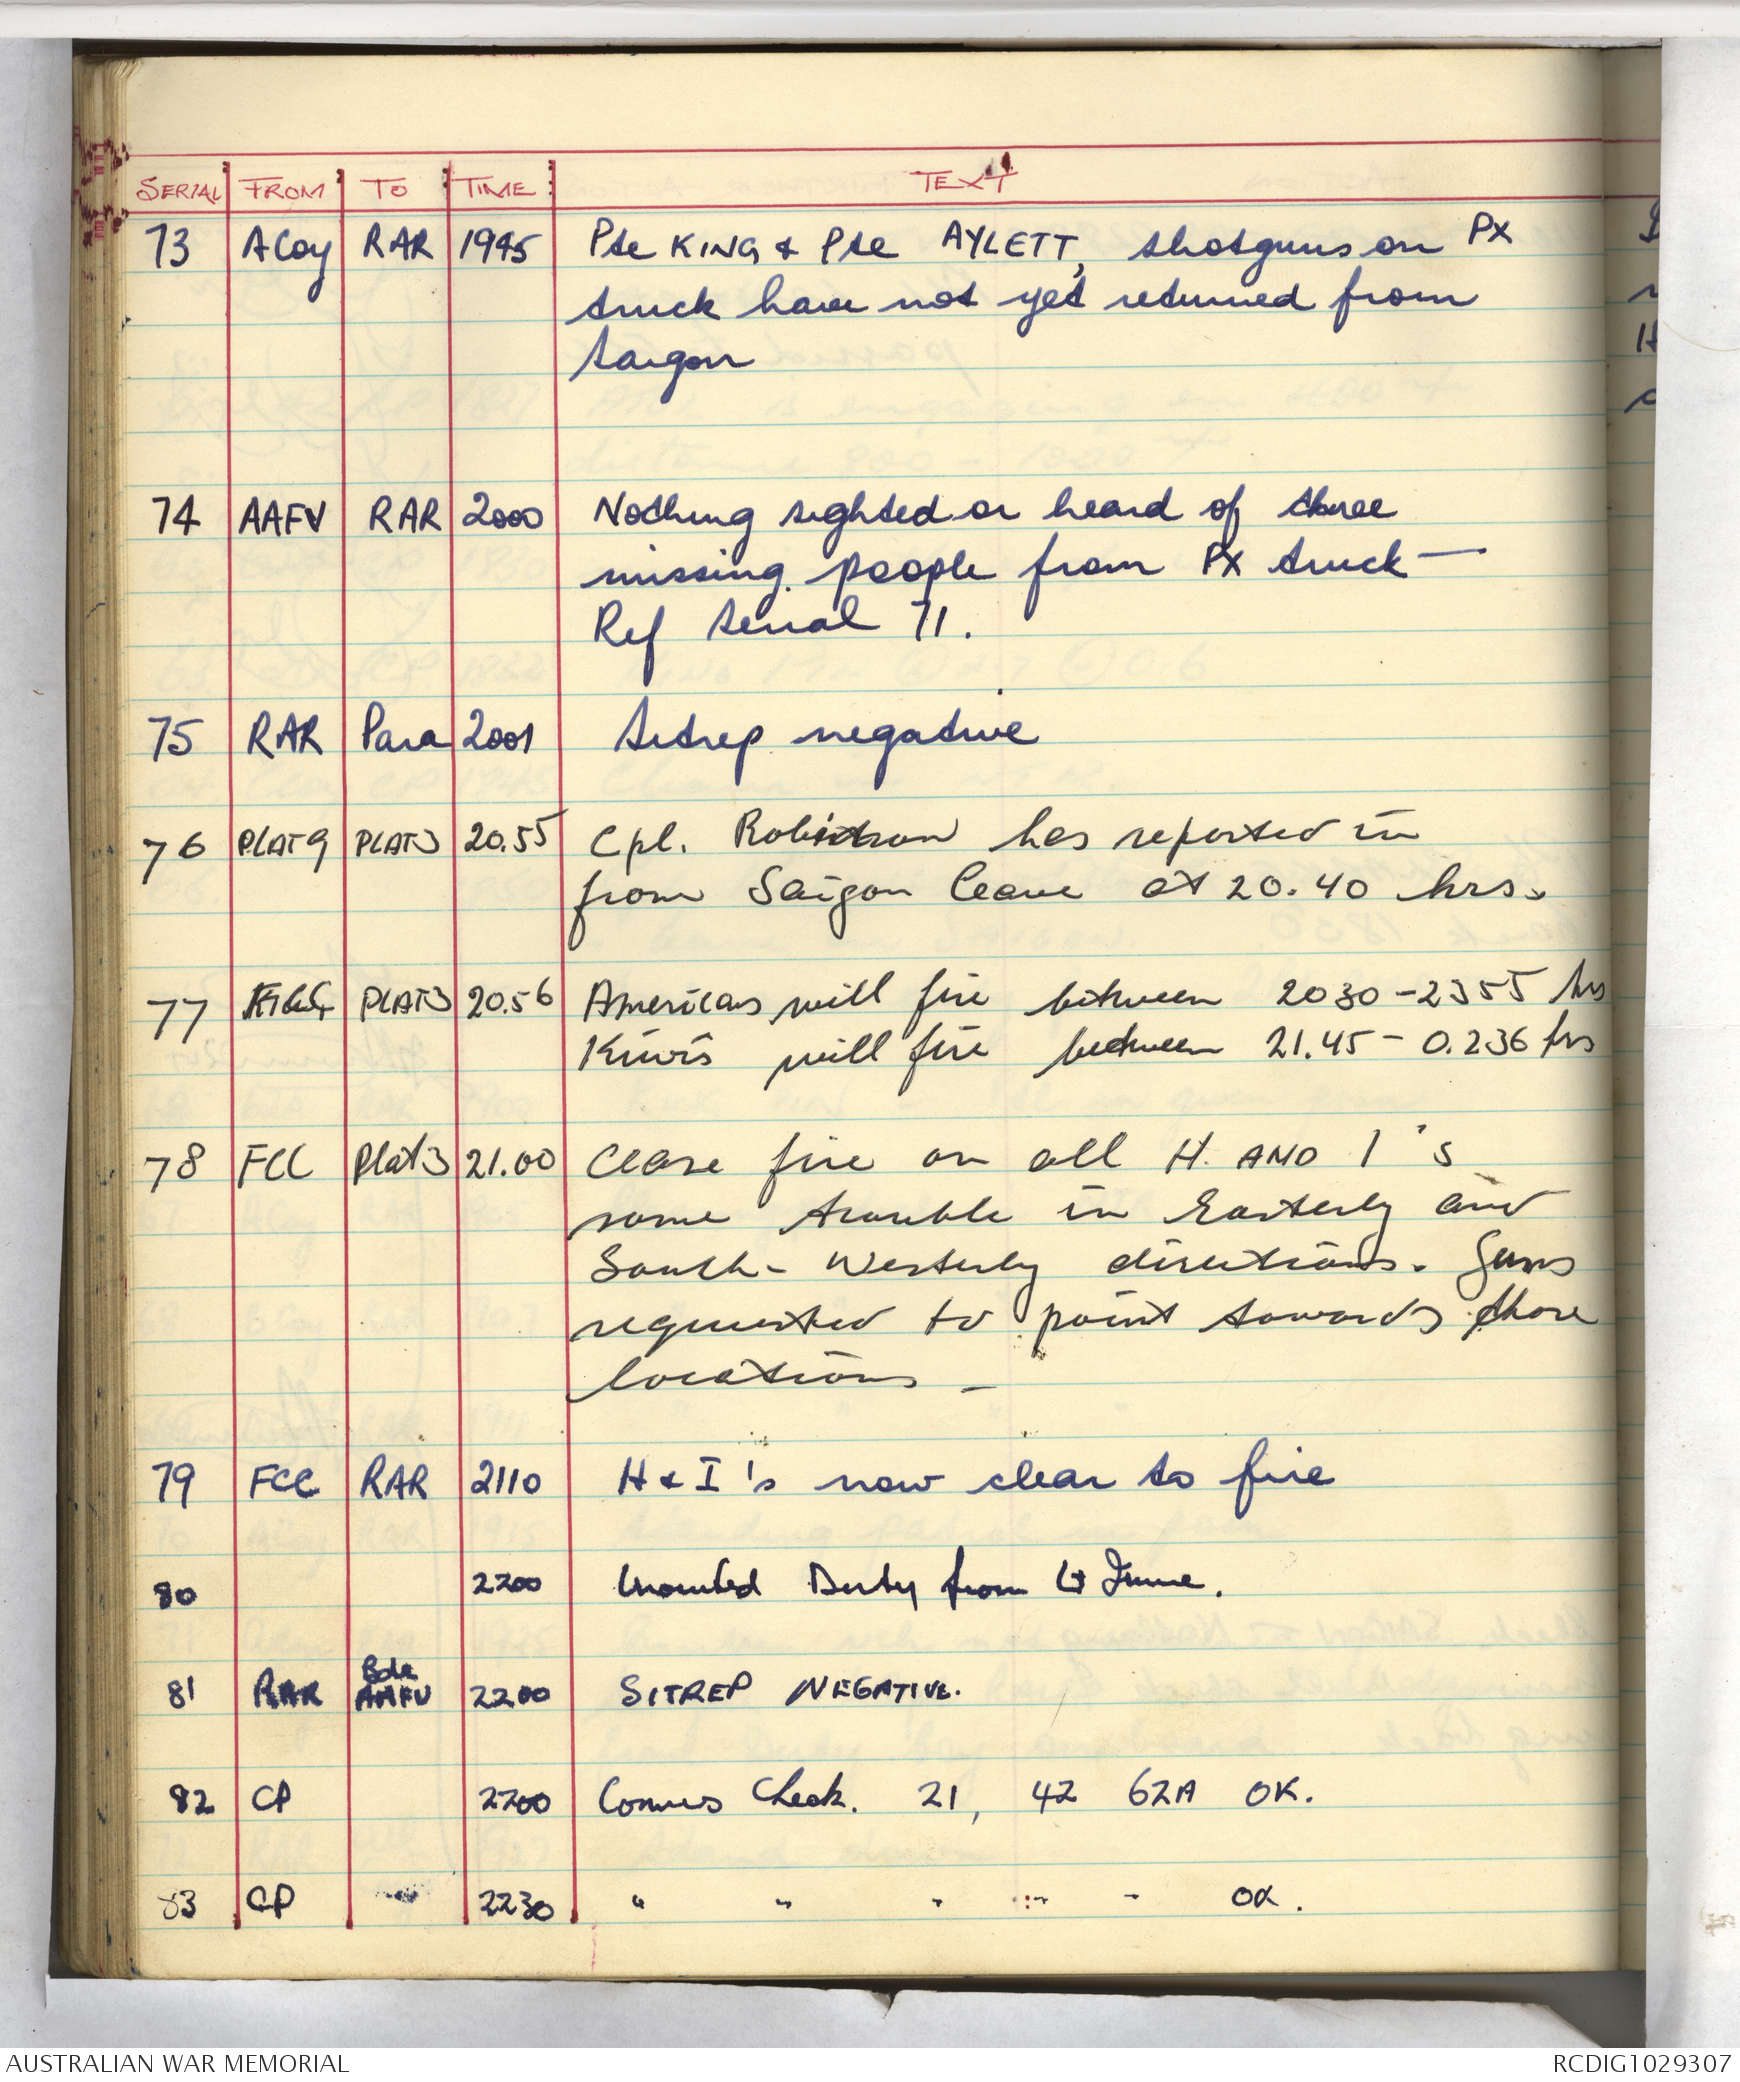 SERIAL FROM TO TIME TEXT
73 A Coy RAR 1945 Pte KING & Pte AYLETT, shotguns on PX
truck have not yet returned from
Saigon
74 AAFV RAR 2000 Nothing sighted or heard of three
missing people from PX truck —
Ref Serial 71.
75 RAR Para 2001 Sitrep negative
76 PLAT9 PLAT3 20.55 Cpl. Robinson has reported in
from Saigon leave at 20.40 hrs.
77 PLAT3 20.56 Americans will fire between 2030-2355 hrs
Kiwis will fire between 21.45 - 0.236 hrs
78 FCC Plat3 21.00 Cease fire on all H. AND I's
some trouble in Easterly and
South-Westerly directions. Guns
requested to point towards those
locations -
79 FCC RAR 2110 H & I's now clear to fire
80 2200 Mounted Duty from 4 June.
81 RAR Bde
AAFV 2200 SITREP NEGATIVE.
82 CP 2200 Comms Check. 21, 42 62A OK.
83 CP 2230 " " " " " OK.
AUSTRALIAN WAR MEMORIAL RCDIG1029307